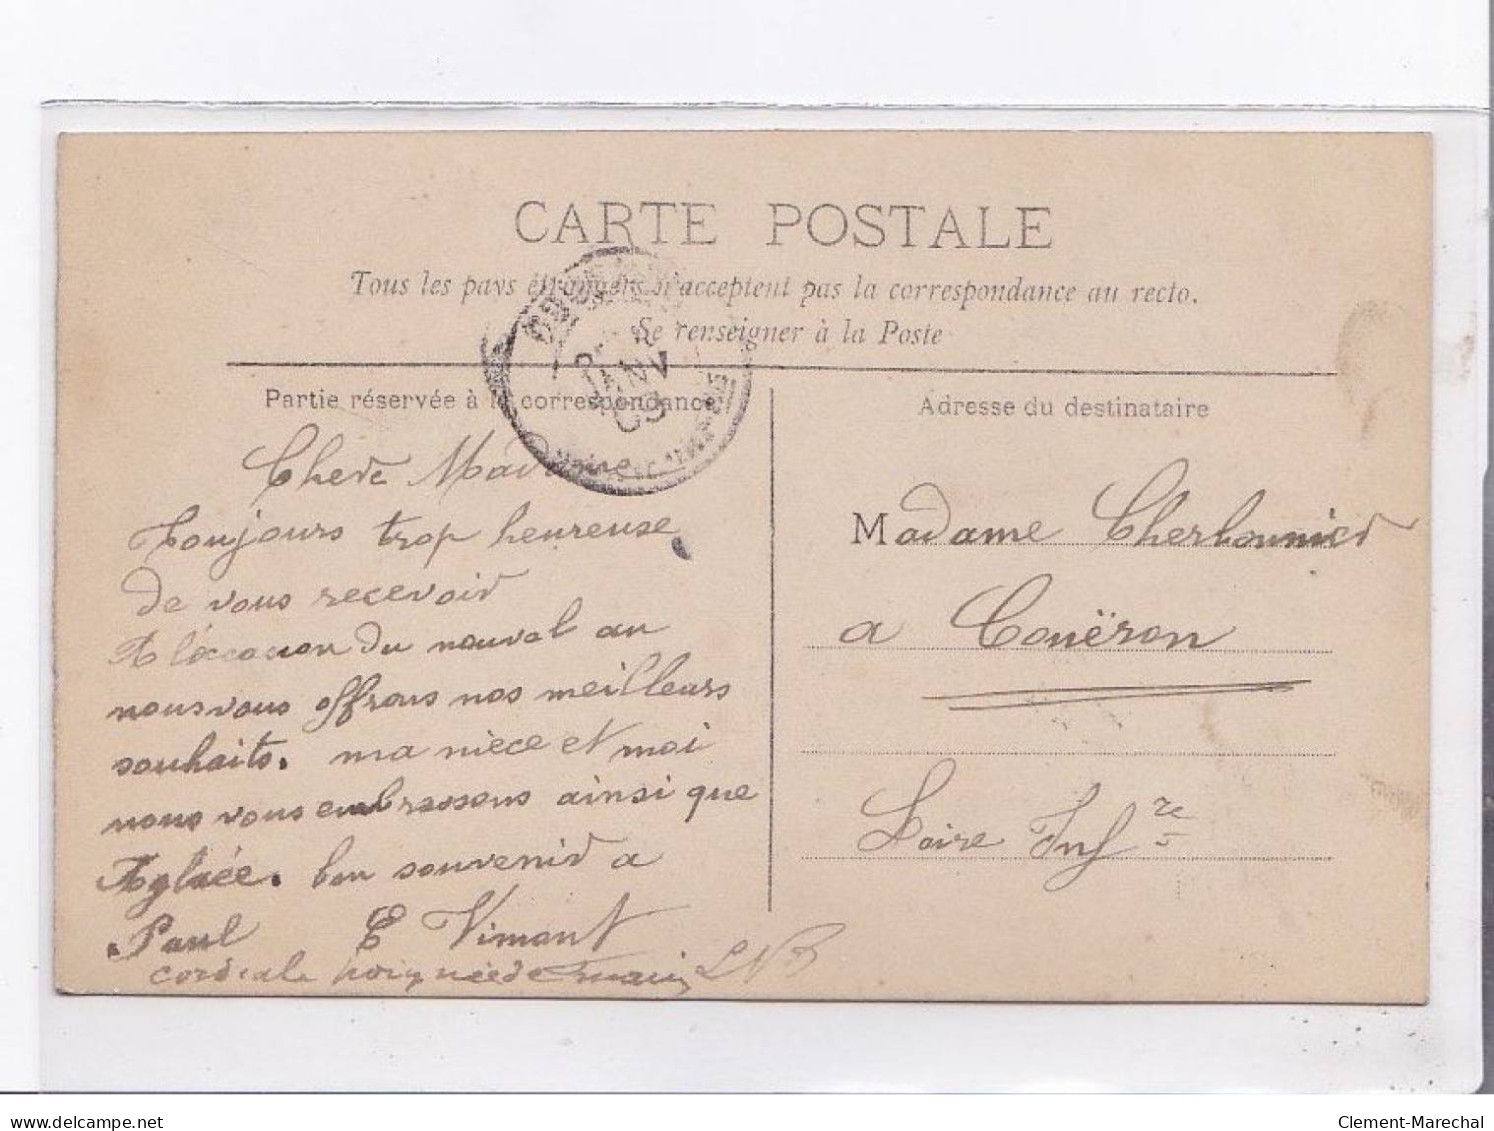 CARTE POSTALE
Tous les pays étrangers n'acceptent pas la correspondance au recto.
Se renseigner à la Poste
Partie réservée à la correspondance
Chere Madame
Toujours trop heureuse
de vous recevoir
A l'occasion du nouvel an
nous vous offrons nos meilleurs
souhaits. ma nièce et moi
nous vous embrassons ainsi que
Aglaée. bon souvenir a
Paul E Vimont
cordiale poignée de main
Adresse du destinataire
Madame Cherbonnier
a Couëron
Loire Infre
delcampe.net
Clement-Marechal